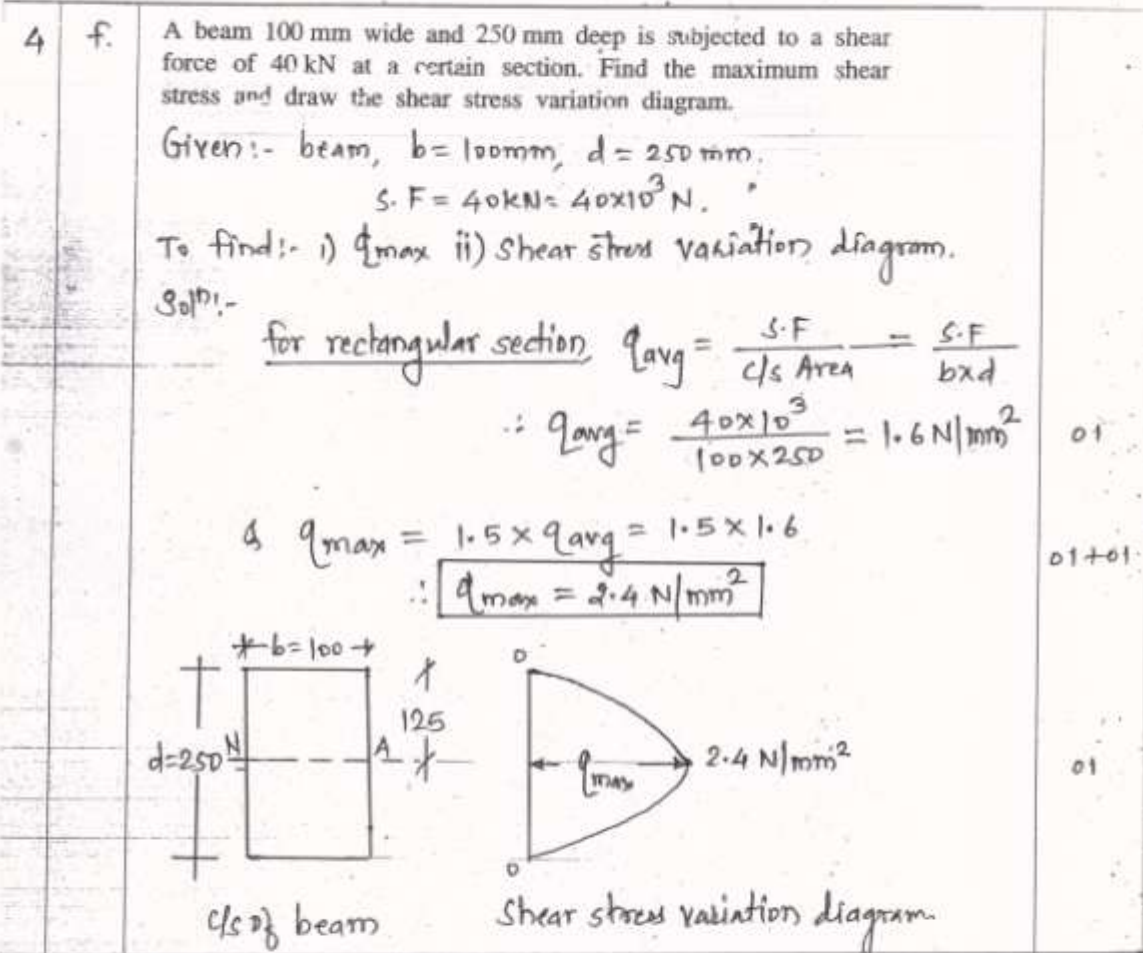 4 f. A beam 100 mm wide and 250 mm deep is subjected to a shear
force of 40 kN at a certain section. Find the maximum shear
stress and draw the shear stress variation diagram.
Given:- beam, b= 100mm, d = 250 mm.
S.F = 40kN= 40x10³ N.
To find:- i) qmax ii) Shear stress variation diagram.
Solⁿ:-
for rectangular section, qavg = S.F / c/s Area = S.F / bxd
∴ qavg = 40×10³ / 100×250 = 1.6 N/mm² 01
& qmax = 1.5 × qavg = 1.5 × 1.6 01+01
∴ qmax = 2.4 N/mm²
b=100
125
d=250 N A
0
qmax 2.4 N/mm² 01
0
c/s of beam Shear stress variation diagram.